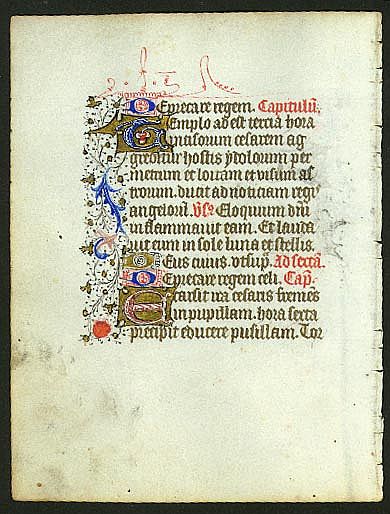 Deprecare regem. Capitulū.
Templo adest tercia hora
ptisorum cesarem ag
greditur hostis ydolorum per
metrum et loricam et visum as
trorum. ducit ad noticiam regū
angelorū. Vs. Eloquium dnī
inflammauit eam. Et lauda
uit eum in sole luna et stellis.
Deus cuius. vt sup̄. Ad sextā.
Deprecare regem celi. Cap.
Exarsit ira cesaris fremēs
in pupillam. hora sexta
precipit educere pusillam. Tor